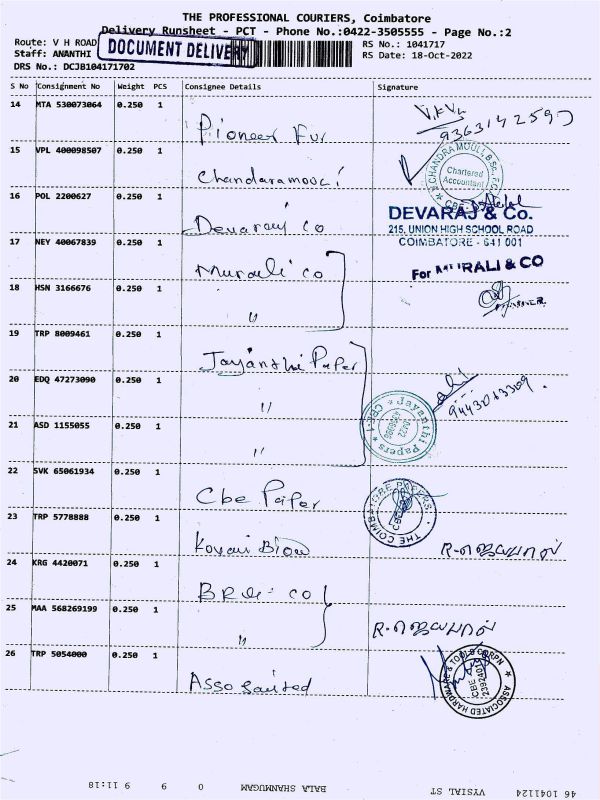 THE PROFESSIONAL COURIERS, Coimbatore
Delivery Runsheet - PCT - Phone No.:0422-3505555 - Page No.:2
Route: V H ROAD
RS No.: 1041717
Staff: ANANTHI
DOCUMENT DELIVERY
RS Date: 18-Oct-2022
DRS No.: DCJB104171702
S No Consignment No Weight PCS Consignee Details Signature
14 MTA 530073064 0.250 1
Pioneer Fur
9363142597
15 VPL 400098507 0.250 1
Chandaramouli
CHANDRA MOULI, B.Sc., F.C.A
Chartered Accountant
CBE
16 POL 2200627 0.250 1
Devaraj Co
DEVARAJ & Co.
215, UNION HIGH SCHOOL ROAD
COIMBATORE - 641 001
17 NEY 40067839 0.250 1
Murali Co
For MURALI & CO
18 HSN 3166676 0.250 1
"
19 TRP 8009461 0.250 1
Jayanthi Paper
20 EDQ 47273090 0.250 1
"
Jayanthi Papers * CBE-1
21 ASD 1155055 0.250 1
"
22 SVK 65061934 0.250 1
Cbe Paper
THE COIMBATORE PAPERS
CBE
23 TRP 5778888 0.250 1
Kovai Blow
R. ஜெயபால்
24 KRG 4420071 0.250 1
25 MAA 568269199 0.250 1
"
R. ஜெயபால்
26 TRP 5054000 0.250 1
Assosaited
ASSOCIATED HARDWARE & TOOLS CORPN
CBE
46 1041124 VYSIAL ST BALA SHANMUGAM 0 9 9 11:18